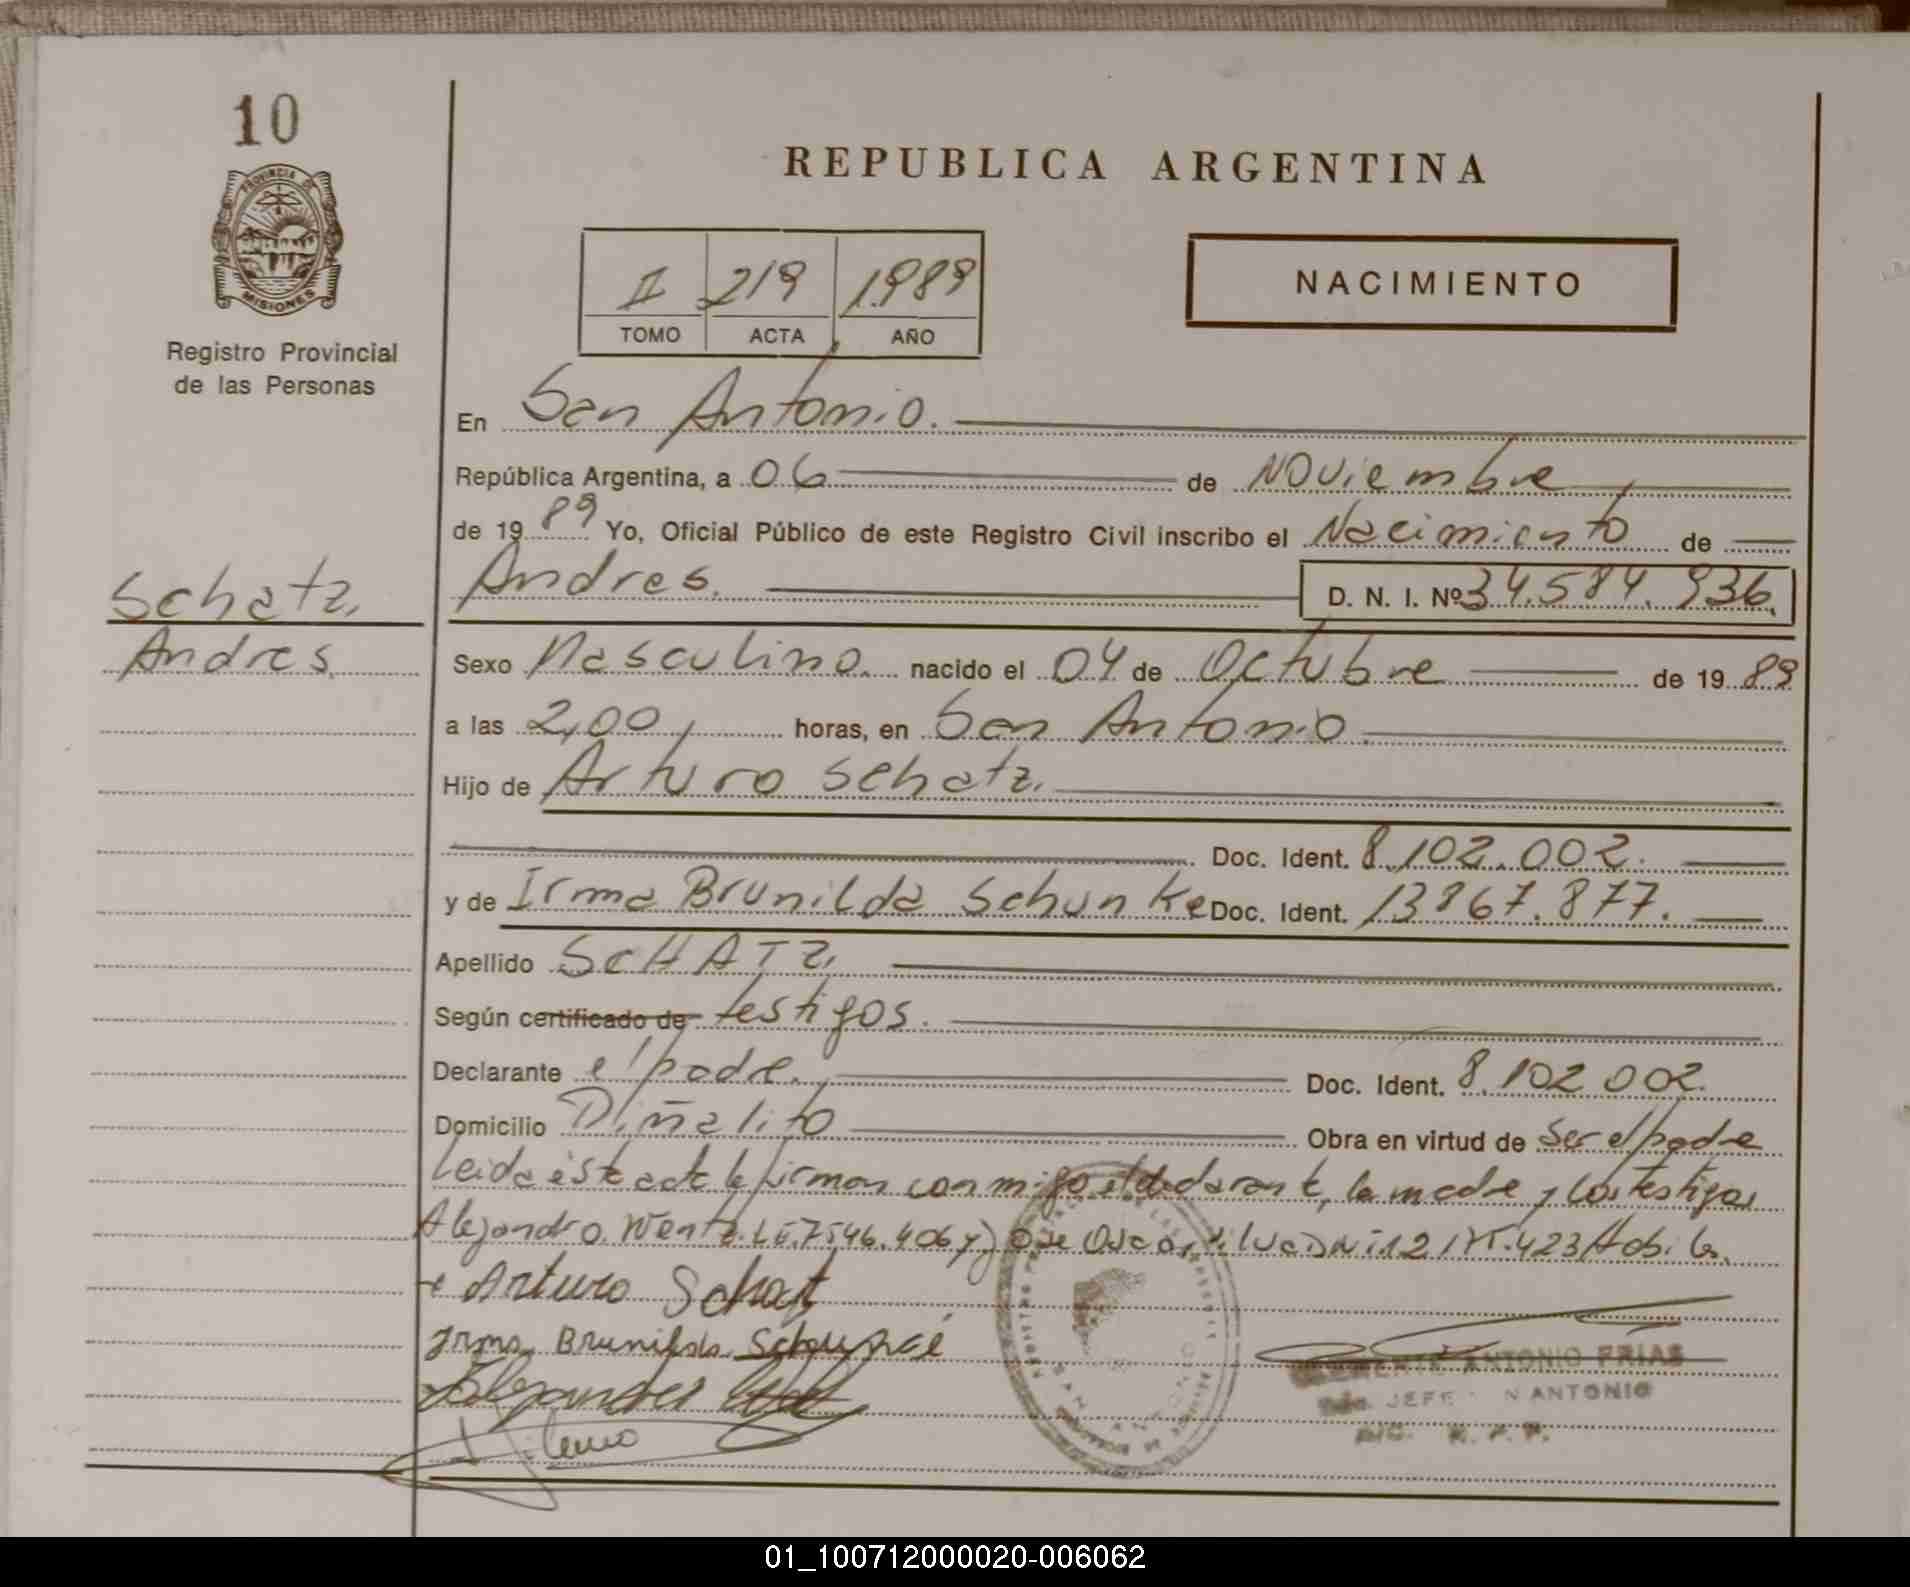 10
PROVINCIA DE
MISIONES
Registro Provincial
de las Personas
REPUBLICA ARGENTINA
II 219 1.989
TOMO ACTA AÑO
NACIMIENTO
En San Antonio.
República Argentina, a 06 de Noviembre
de 19 89 Yo, Oficial Público de este Registro Civil inscribo el Nacimiento de
Schatz, Andres. D. N. I. Nº 34.584.936.
Andres.
Sexo Masculino. nacido el 04 de Octubre de 19 89
a las 2,00, horas, en San Antonio.
Hijo de Arturo Schatz.
Doc. Ident. 8.102.002.
y de Irma Brunilda Schunke Doc. Ident. 13867.877.
Apellido SCHATZ,
Según certificado de testigos.
Declarante el padre. Doc. Ident. 8.102.002.
Domicilio Piñalito Obra en virtud de Ser el padre
Leida ésta acta la firman conmigo el declarante, la madre y los testigos
Alejandro Wentz. LE.7546.406 y Jose Oscar DNI 12 423 Habiles.
Arturo Schatz
Irma Brunilda
ANTONIO FRIAS
JEFE N ANTONIO
01_100712000020-006062